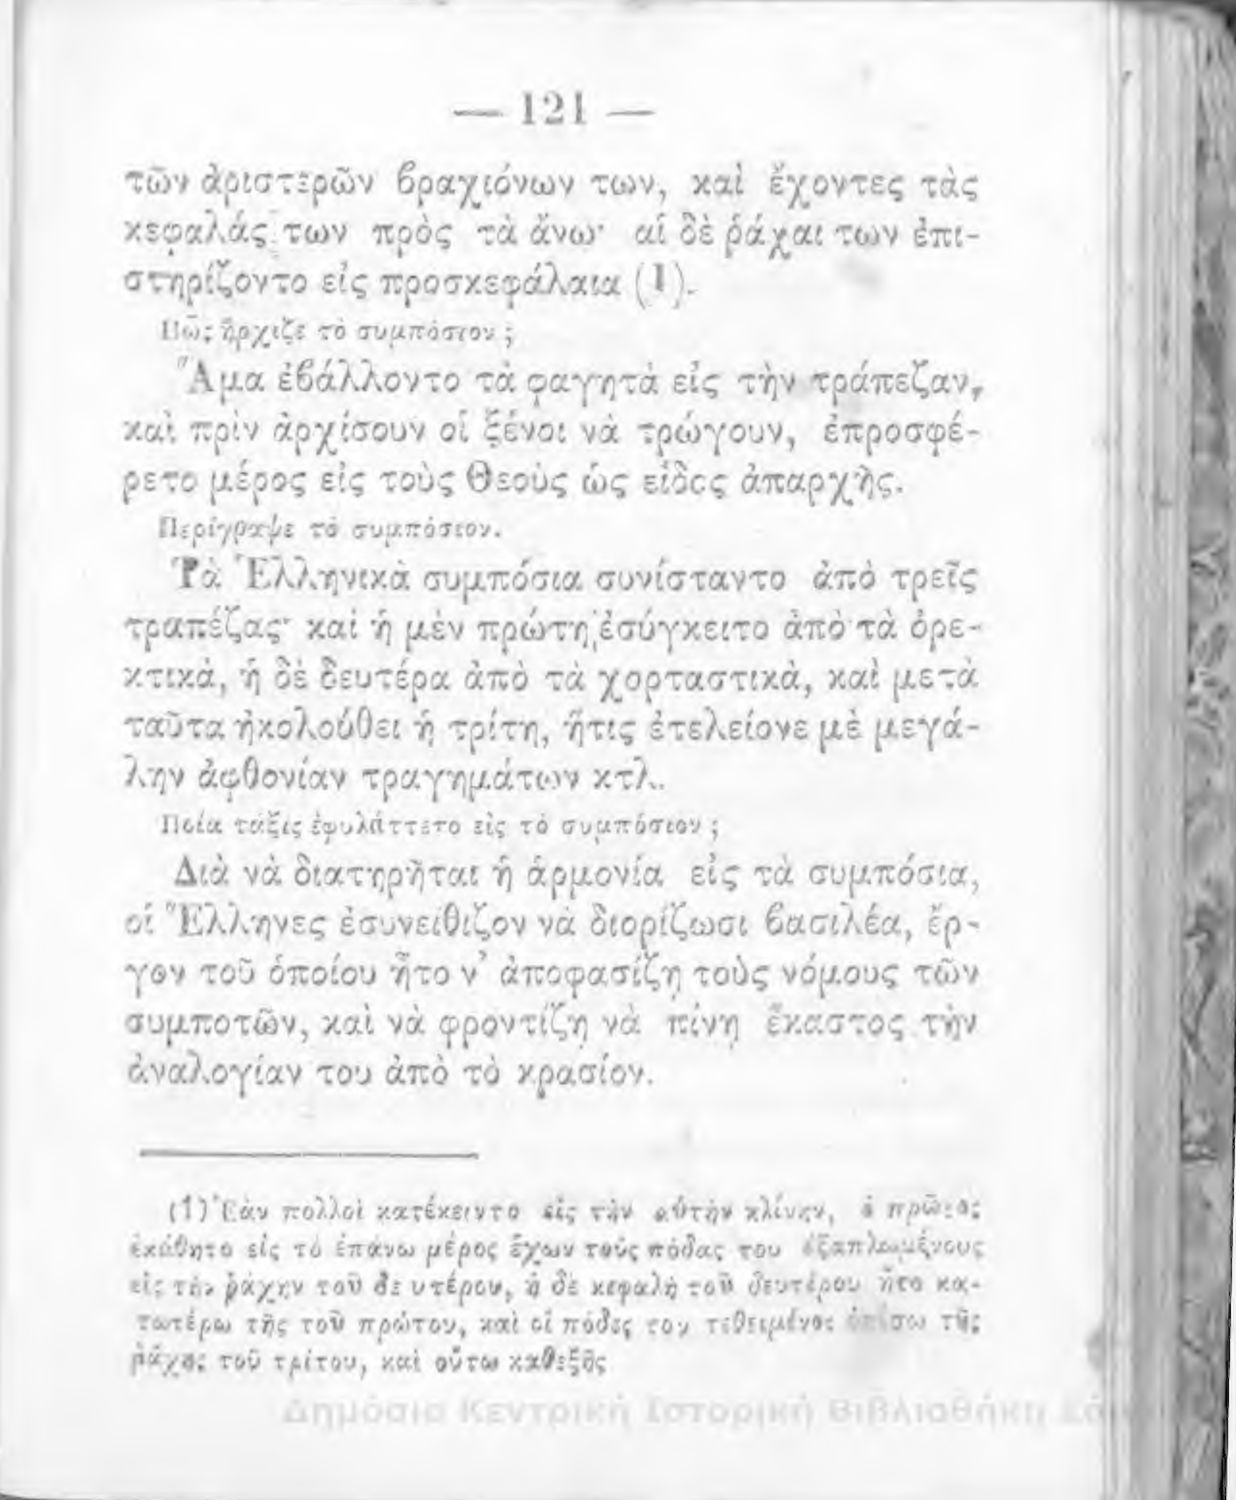 — 121 —
τῶν ἀριστερῶν βραχιόνων των, καὶ ἔχοντες τὰς
κεφαλάς των πρὸς τὰ ἄνω· αἱ δὲ ῥάχαι των ἐπι-
στηρίζοντο εἰς προσκεφάλαια (1).
Πῶς ἤρχιζε τὸ συμπόσιον;
Ἅμα ἐβάλλοντο τὰ φαγητὰ εἰς τὴν τράπεζαν,
καὶ πρὶν ἀρχίσουν οἱ ξένοι νὰ τρώγουν, ἐπροσφέ-
ρετο μέρος εἰς τοὺς Θεοὺς ὡς εἶδος ἀπαρχῆς.
Περίγραψε τὸ συμπόσιον.
Τὰ Ἑλληνικὰ συμπόσια συνίσταντο ἀπὸ τρεῖς
τραπέζας· καὶ ἡ μὲν πρώτη ἐσύγκειτο ἀπὸ τὰ ὀρε-
κτικὰ, ἡ δὲ δευτέρα ἀπὸ τὰ χορταστικὰ, καὶ μετὰ
ταῦτα ἠκολούθει ἡ τρίτη, ἥτις ἐτελείονε μὲ μεγά-
λην ἀφθονίαν τραγημάτων κτλ.
Ποία τάξις ἐφυλάττετο εἰς τὸ συμπόσιον;
Διὰ νὰ διατηρῆται ἡ ἁρμονία εἰς τὰ συμπόσια,
οἱ Ἕλληνες ἐσυνείθιζον νὰ διορίζωσι βασιλέα, ἔρ-
γον τοῦ ὁποίου ἦτο ν’ ἀποφασίζῃ τοὺς νόμους τῶν
συμποτῶν, καὶ νὰ φροντίζῃ νὰ πίνῃ ἕκαστος τὴν
ἀναλογίαν του ἀπὸ τὸ κρασίον.
(1) Ἐὰν πολλοὶ κατέκειντο εἰς τὴν αὐτὴν κλίνην, ὁ πρῶτος
ἐκάθητο εἰς τὸ ἐπάνω μέρος ἔχων τοὺς πόδας του ἐξαπλωμένους
εἰς τὴν ῥάχην τοῦ δευτέρου, ἡ δὲ κεφαλὴ τοῦ δευτέρου ἦτο κα-
τωτέρω τῆς τοῦ πρώτου, καὶ οἱ πόδες του τεθειμένοι ὀπίσω τῆς
ῥάχης τοῦ τρίτου, καὶ οὕτω καθεξῆς
Δημόσια Κεντρική Ιστορική Βιβλιοθήκη